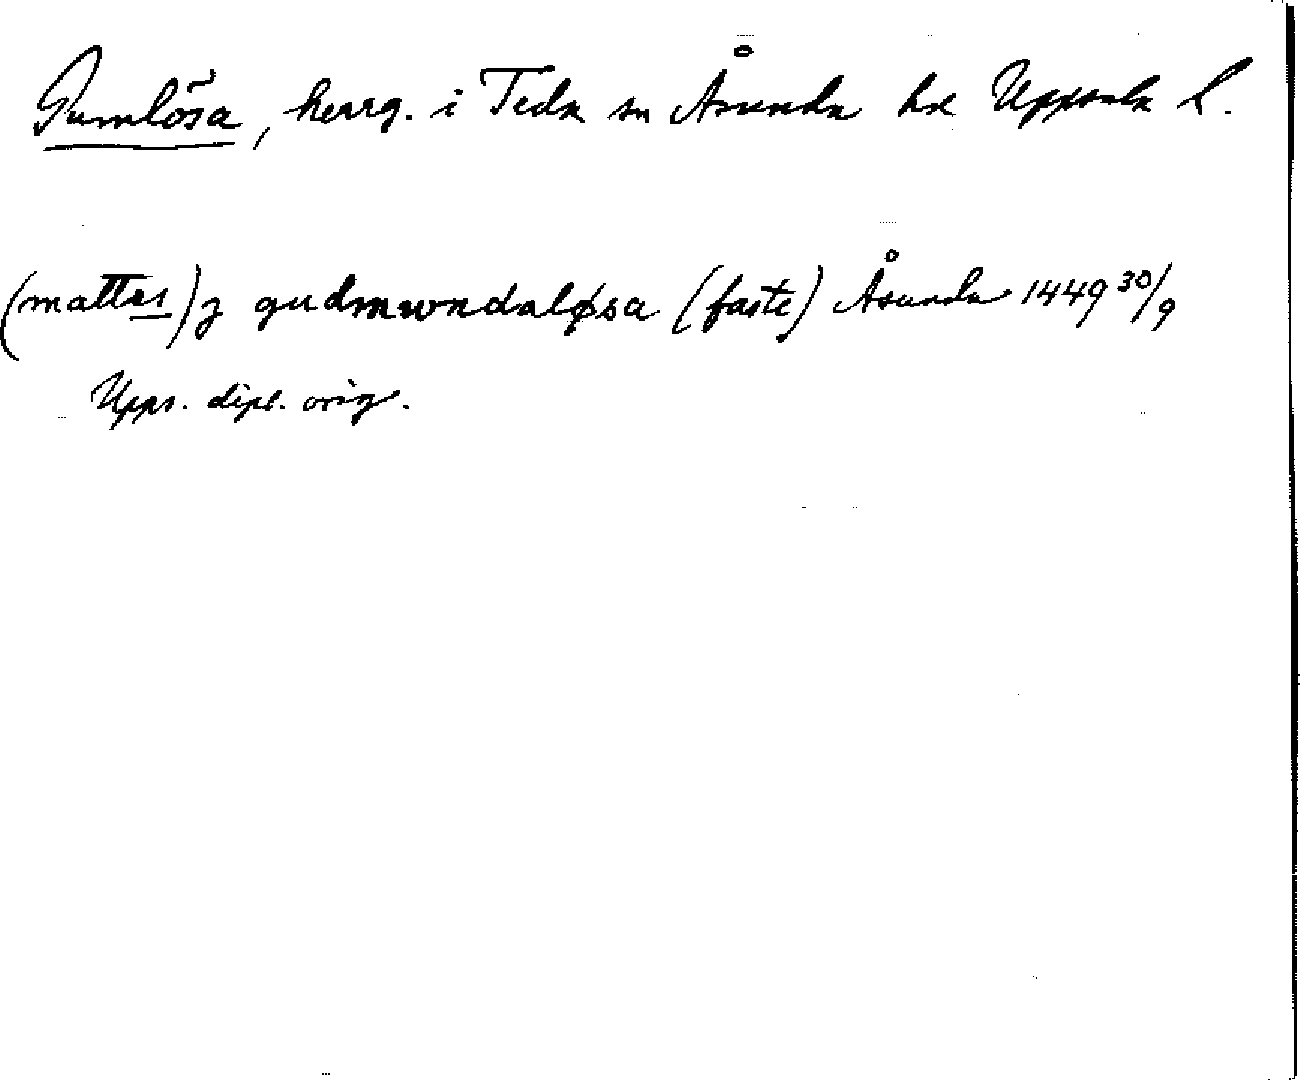 Gumlösa, herrg. i Teda sn Åsunda hd Uppsala l.
(mattes) ȝ gudmwndaløsa (faste) Åsunda 1449 30/9
Upps. dipl. orig.